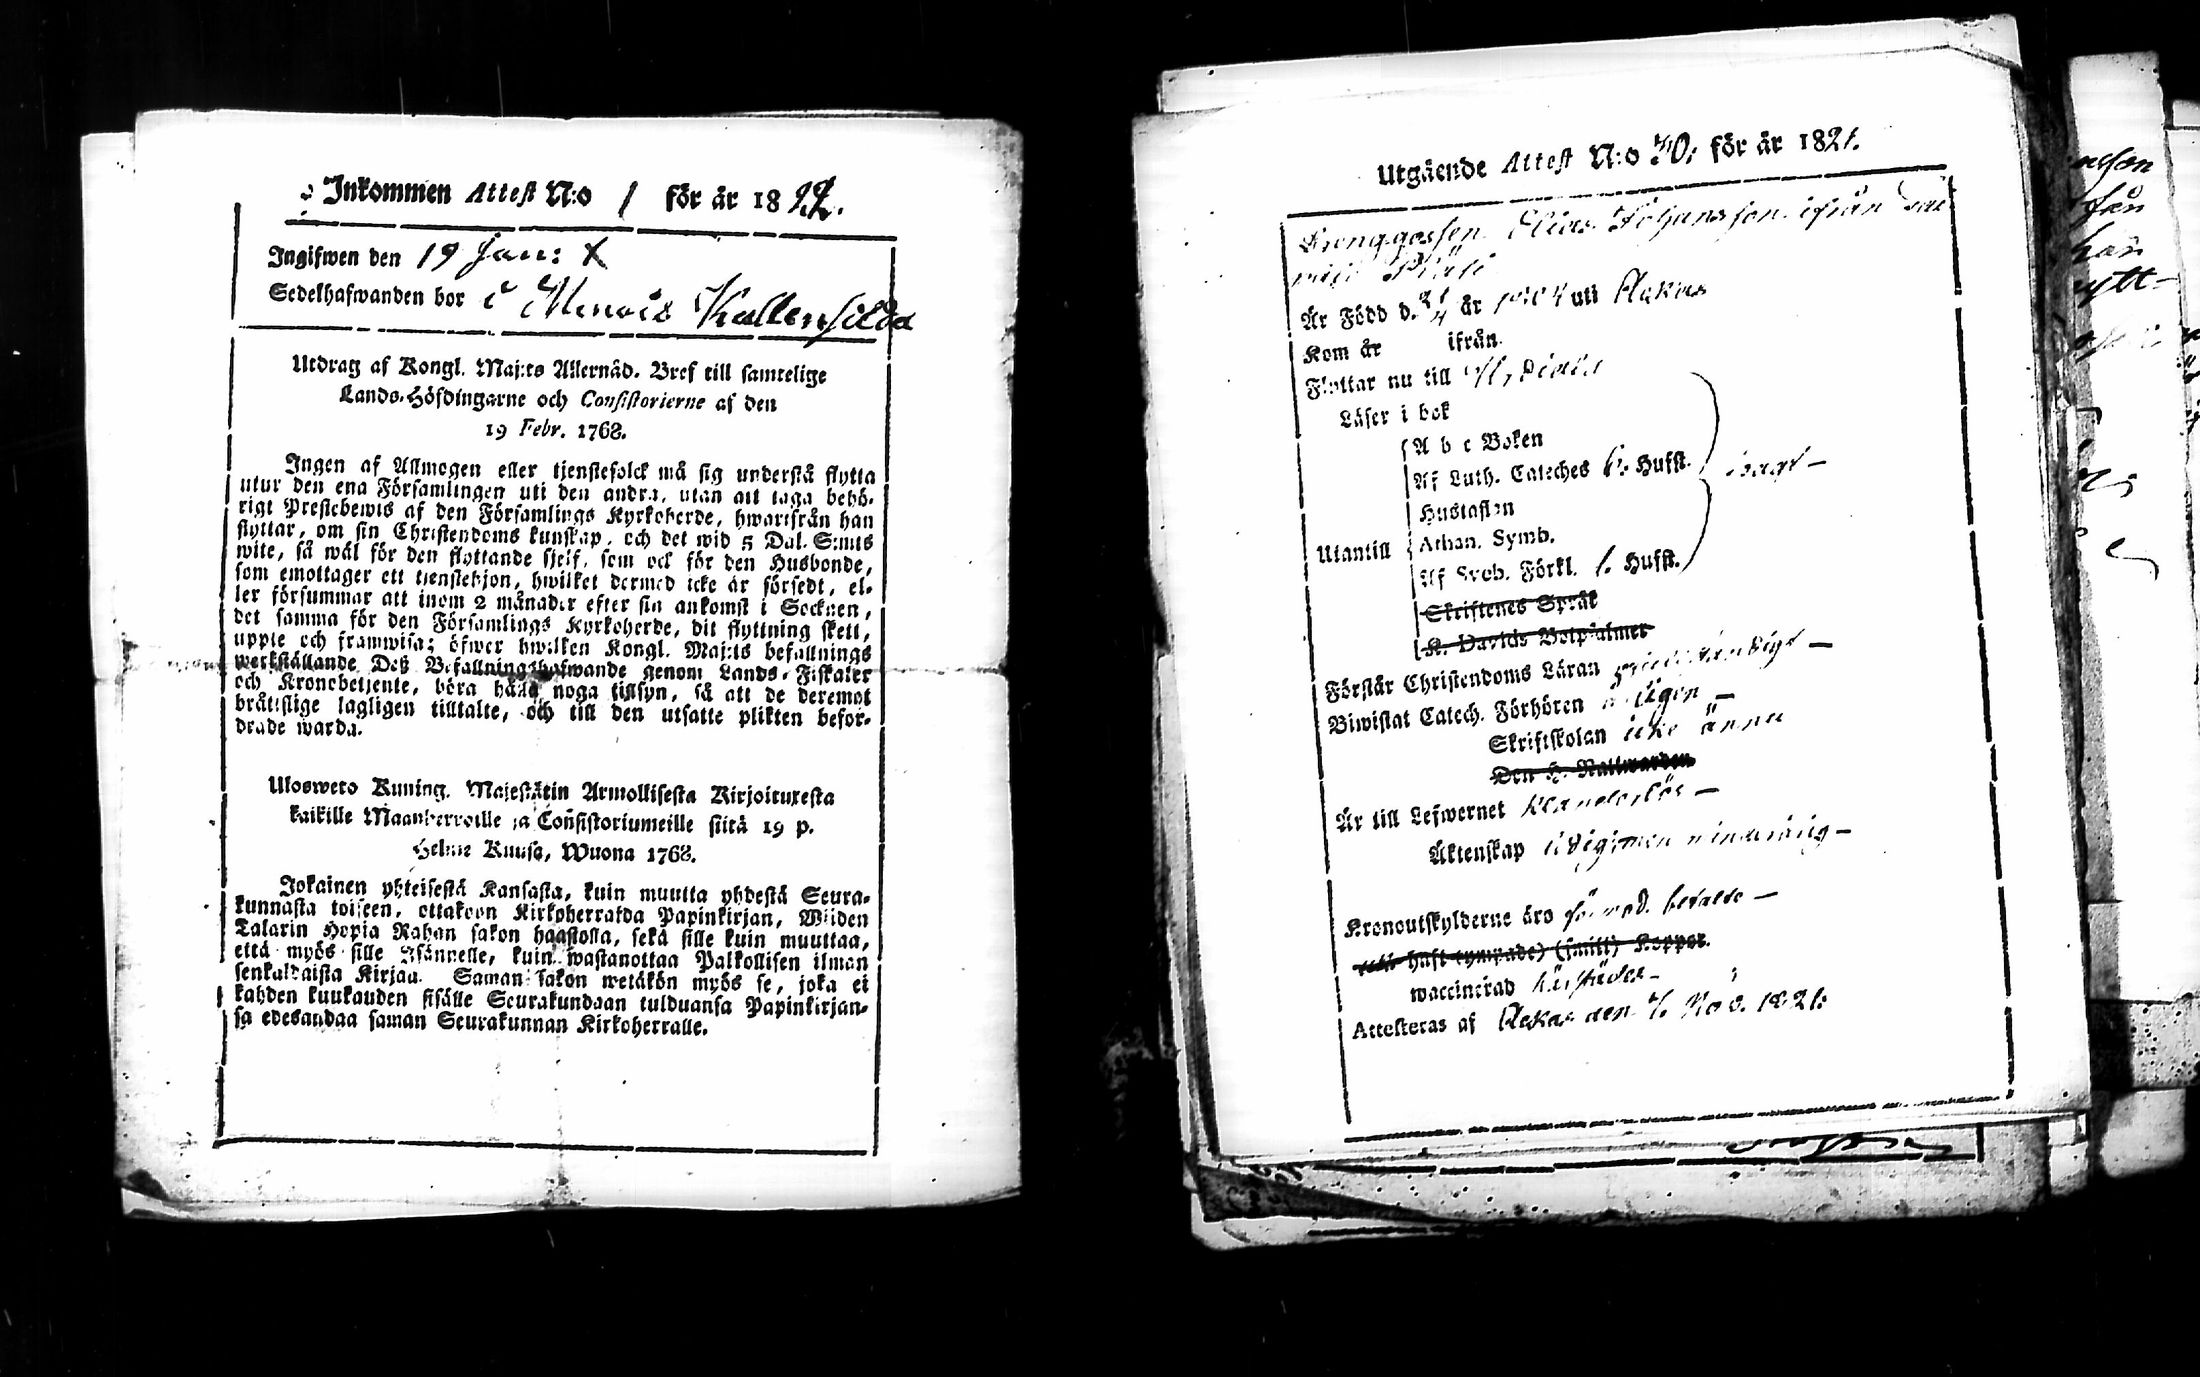 Inkommen Attest N:o 1 för år 1822.
Ingifwen den 19 Jan: X
Sedelhafwanden bor i Menois Kallensilda
Utdrag af Kongl. Maj:ts Allernåd. Bref till samtelige
Lands-Höfdingarne och Consistorierne af den
19 Febr. 1768.
Ingen af Allmogen eller tjenstefolck må sig understå flytta
utur den ena Församlingen uti den andra, utan att taga behö-
rigt Prestebewis af den Församlings Kyrkoherde, hwarifrån han
flyttar, om sin Christendoms kunskap, och det wid 5 Dal. S:mts
wite, så wäl för den flyttande sjelf, som ock för den Husbonde,
som emottager ett tjenstehjon, hwilket dermed icke är försedt, el-
ler försummar att inom 2 månader efter sin ankomst i Socknen,
det samma för den Församlings Kyrkoherde, dit flyttning skett,
uppte och framwisa; öfwer hwilken Kongl. Maj:ts befallnings
werkställande Deß Befallningshafwande genom Lands-Fiskaler
och Kronobetjente, böra hålla noga tillsyn, så att de deremot
bråtislige lagligen tilltalte, och till den utsatte plikten befor-
drade warda.
Ulosweto Kuning. Majestätin Armollisesta Kirjoituxesta
kaikille Maanherroille ja Consistoriumeille siitä 19 p.
Helme Kuusa, Wuona 1768.
Jokainen yhteisestä Kansasta, kuin muutta yhdestä Seura-
kunnasta toiseen, ottakoon Kirkoherralda Papinkirjan, Wiiden
Talarin Hopia Rahan sakon haastolla, sekä sille kuin muuttaa,
että myös sille Isännelle, kuin wastanottaa Palkollisen ilman
senkaldaista Kirjau. Saman sakon wetäkön myös se, joka ei
kahden kuukauden sisälle Seurakundaan tulduansa Papinkirjan-
sa edesandaa saman Seurakunnan Kirkoherralle.
Utgående Attest N:o 40; för år 1821.
Drenggossen Elias Johansson ifrån
Är Född d. år uti Ackas
Kom år ifrån
Flyttar nu till
Läser i bok
A b c Boken
Af Luth. Cateches 6. Hufst.
Hustaflan
Utantill Athan. Symb.
Af Sveb. Förkl. 6. Hufst.
Skriftenes Språk
K. Davids Botpsalmer
Förstår Christendoms Läran
Biwistat Catech. Förhören
Skriftskolan icke ännu
Den H. Nattwarden
Är till Lefwernet klanderlös –
Äktenskap ledig, men minderårig –
Kronoutskylderne äro betalde –
haft (ympade) (smitt) Koppor.
waccinerad
Attesteras af Ackas den Nov. 1821: